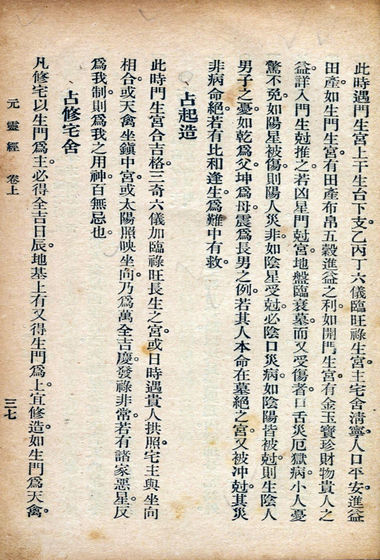 此時遇門生宮上干生台下支乙丙丁六儀臨旺祿生宮主宅舍淸寧人口平安進益
田產如生門生宮有田產布帛五穀進益之利如開門生宮有金玉寶珍財物貴人之
益詳入門生尅推之若凶星門尅宮地盤臨衰墓而又受傷者口舌災厄獄病小人憂
驚不免如陽星被傷則陽人災非如陰星受尅必陰口災病如陰陽皆被尅則生陰人
男子之憂如乾爲父坤爲母震爲長男之例若其人本命在墓絕之宮又被沖尅其災
非病命絕若有比和逢生爲難中有救
占起造
此時門生宮合吉格三奇六儀加臨祿旺長生之宮或日時遇貴人拱照宅主與坐向
相合或天禽坐鎭中宮或太陽照映坐向乃爲萬全吉慶發祿非常若有諸家惡星反
爲我制則爲我之用神百無忌也
占修宅舍
凡修宅以生門爲主必得全吉日辰地基上有又得生門爲上宜修造如生門爲天禽
元靈經 卷上
三七